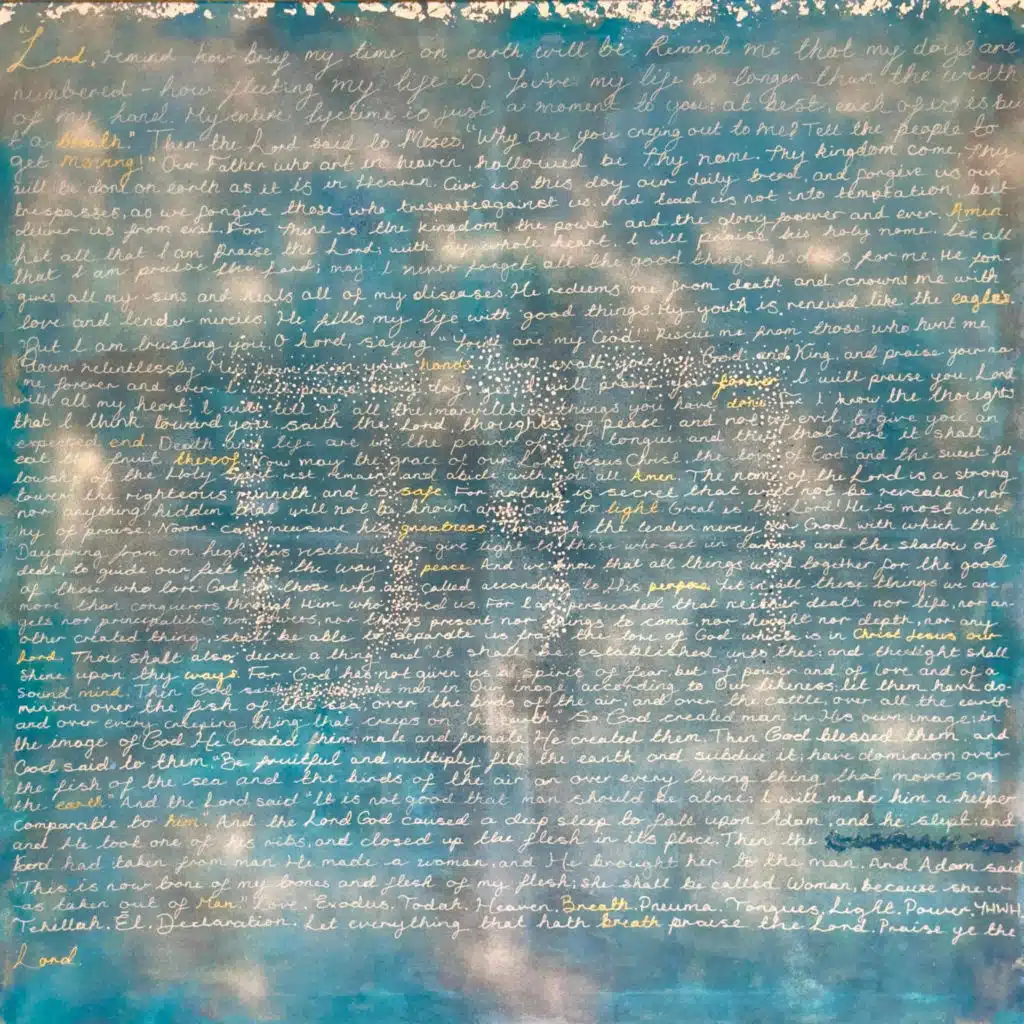 "Lord, remind how brief my time on earth will be. Remind me that my days are
numbered – how fleeting my life is. You've my life no longer than the width
of my hand. My entire lifetime is just a moment to you; at best, each of us is bu
t a breath." Then the Lord said to Moses, "Why are you crying out to Me? Tell the people to
get moving!" Our Father who art in heaven, hallowed be Thy name. Thy kingdom come, Thy
will be done on earth as it is in Heaven. Give us this day our daily bread, and forgive us our
trespasses, as we forgive those who trespass against us. And lead us not into temptation, but
deliver us from evil. For Thine is the kingdom, the power, and the glory forever and ever. Amen.
Let all that I am praise the Lord; with my whole heart, I will praise his holy name. Let all
that I am praise the Lord; may I never forget all the good things he does for me. He for-
gives all my sins and heals all of my diseases. He redeems me from death and crowns me with
love and tender mercies. He fills my life with good things. My youth is renewed like the eagles.
But I am trusting you, O Lord, saying, "You are my God!" Rescue me from those who hunt me
down relentlessly. My your hands. I will exalt you, God, and King, and praise you
me forever and I will praise day; I will praise you forever. I will praise you, Lord
with all my heart; I will tell of all the marvellous things you have done. For I know the thoughts
that I think toward you, saith the Lord, thoughts of peace, and not of evil, to give you an
expected end. Death and life are in the power of the tongue and they that love it shall
eat the fruit thereof. Now may the grace of our Lord Jesus Christ, the love of God and the sweet fel
lowship of the Holy and abide with all. Amen. The name of the Lord is a strong
tower; the righteous runneth and is safe. For nothing is secret that will not be revealed, nor
nor anything hidden that will not be known and come to light. Great is the Lord! He is most wor
hy of praise. No one can measure his greatness. Through the tender mercy of our God, with which the
Dayspring from on high has visited us; to give light to those who sit in darkness and the shadow of
death, to guide our feet into the way of peace. And we know that all things work together for the good
of those who love God, to those who called according to His purpose. Yet in all these things, we are
more than conquerors through Him who loved us. For I am persuaded that neither death nor life, nor an-
gels nor principalities nor powers, nor things present nor things to come, nor height nor depth, nor any
other created thing, shall be able to separate us from the love of God which is in Christ Jesus our
Lord. Thou shalt also decree a thing and it shall be established unto thee: and the light shall
shine upon thy ways. For God has not given us a spirit of fear, but of power and of love and of
sound mind. Then God said, the man in Our image, according to Our likeness; let them have do-
minion over the fish of the sea, over the birds of the air, and over the cattle, over all the earth
and over every creeping thing that creeps on the earth. So God created man in His own image; in
the image of God He created them; male and female He created them. Then God blessed them, and
God said to them, "Be fruitful and multiply; fill the earth and subdue it; have dominion over
the fish of the sea and the birds of the air on over every living thing that moves on
the earth." And the Lord said "It is not good that man should be alone; I will make him a helper
comparable to him." And the Lord God caused a deep sleep to fall upon Adam, and he slept; and
and He took one of his ribs, and closed up the flesh in its place. Then the
Lord had taken from man He made a woman, and He brought her to the man. And Adam said
This is now bone of my bones and flesh of my flesh; she shall be called Woman, because she w
as taken out of Man." Love. Exodus. Todah. Heaven. Breath. Pneuma. Tongues. Light. Power. YHWH.
Tehillah. Ēl. Declaration. Let everything that hath breath praise the Lord. Praise ye the
Lord.